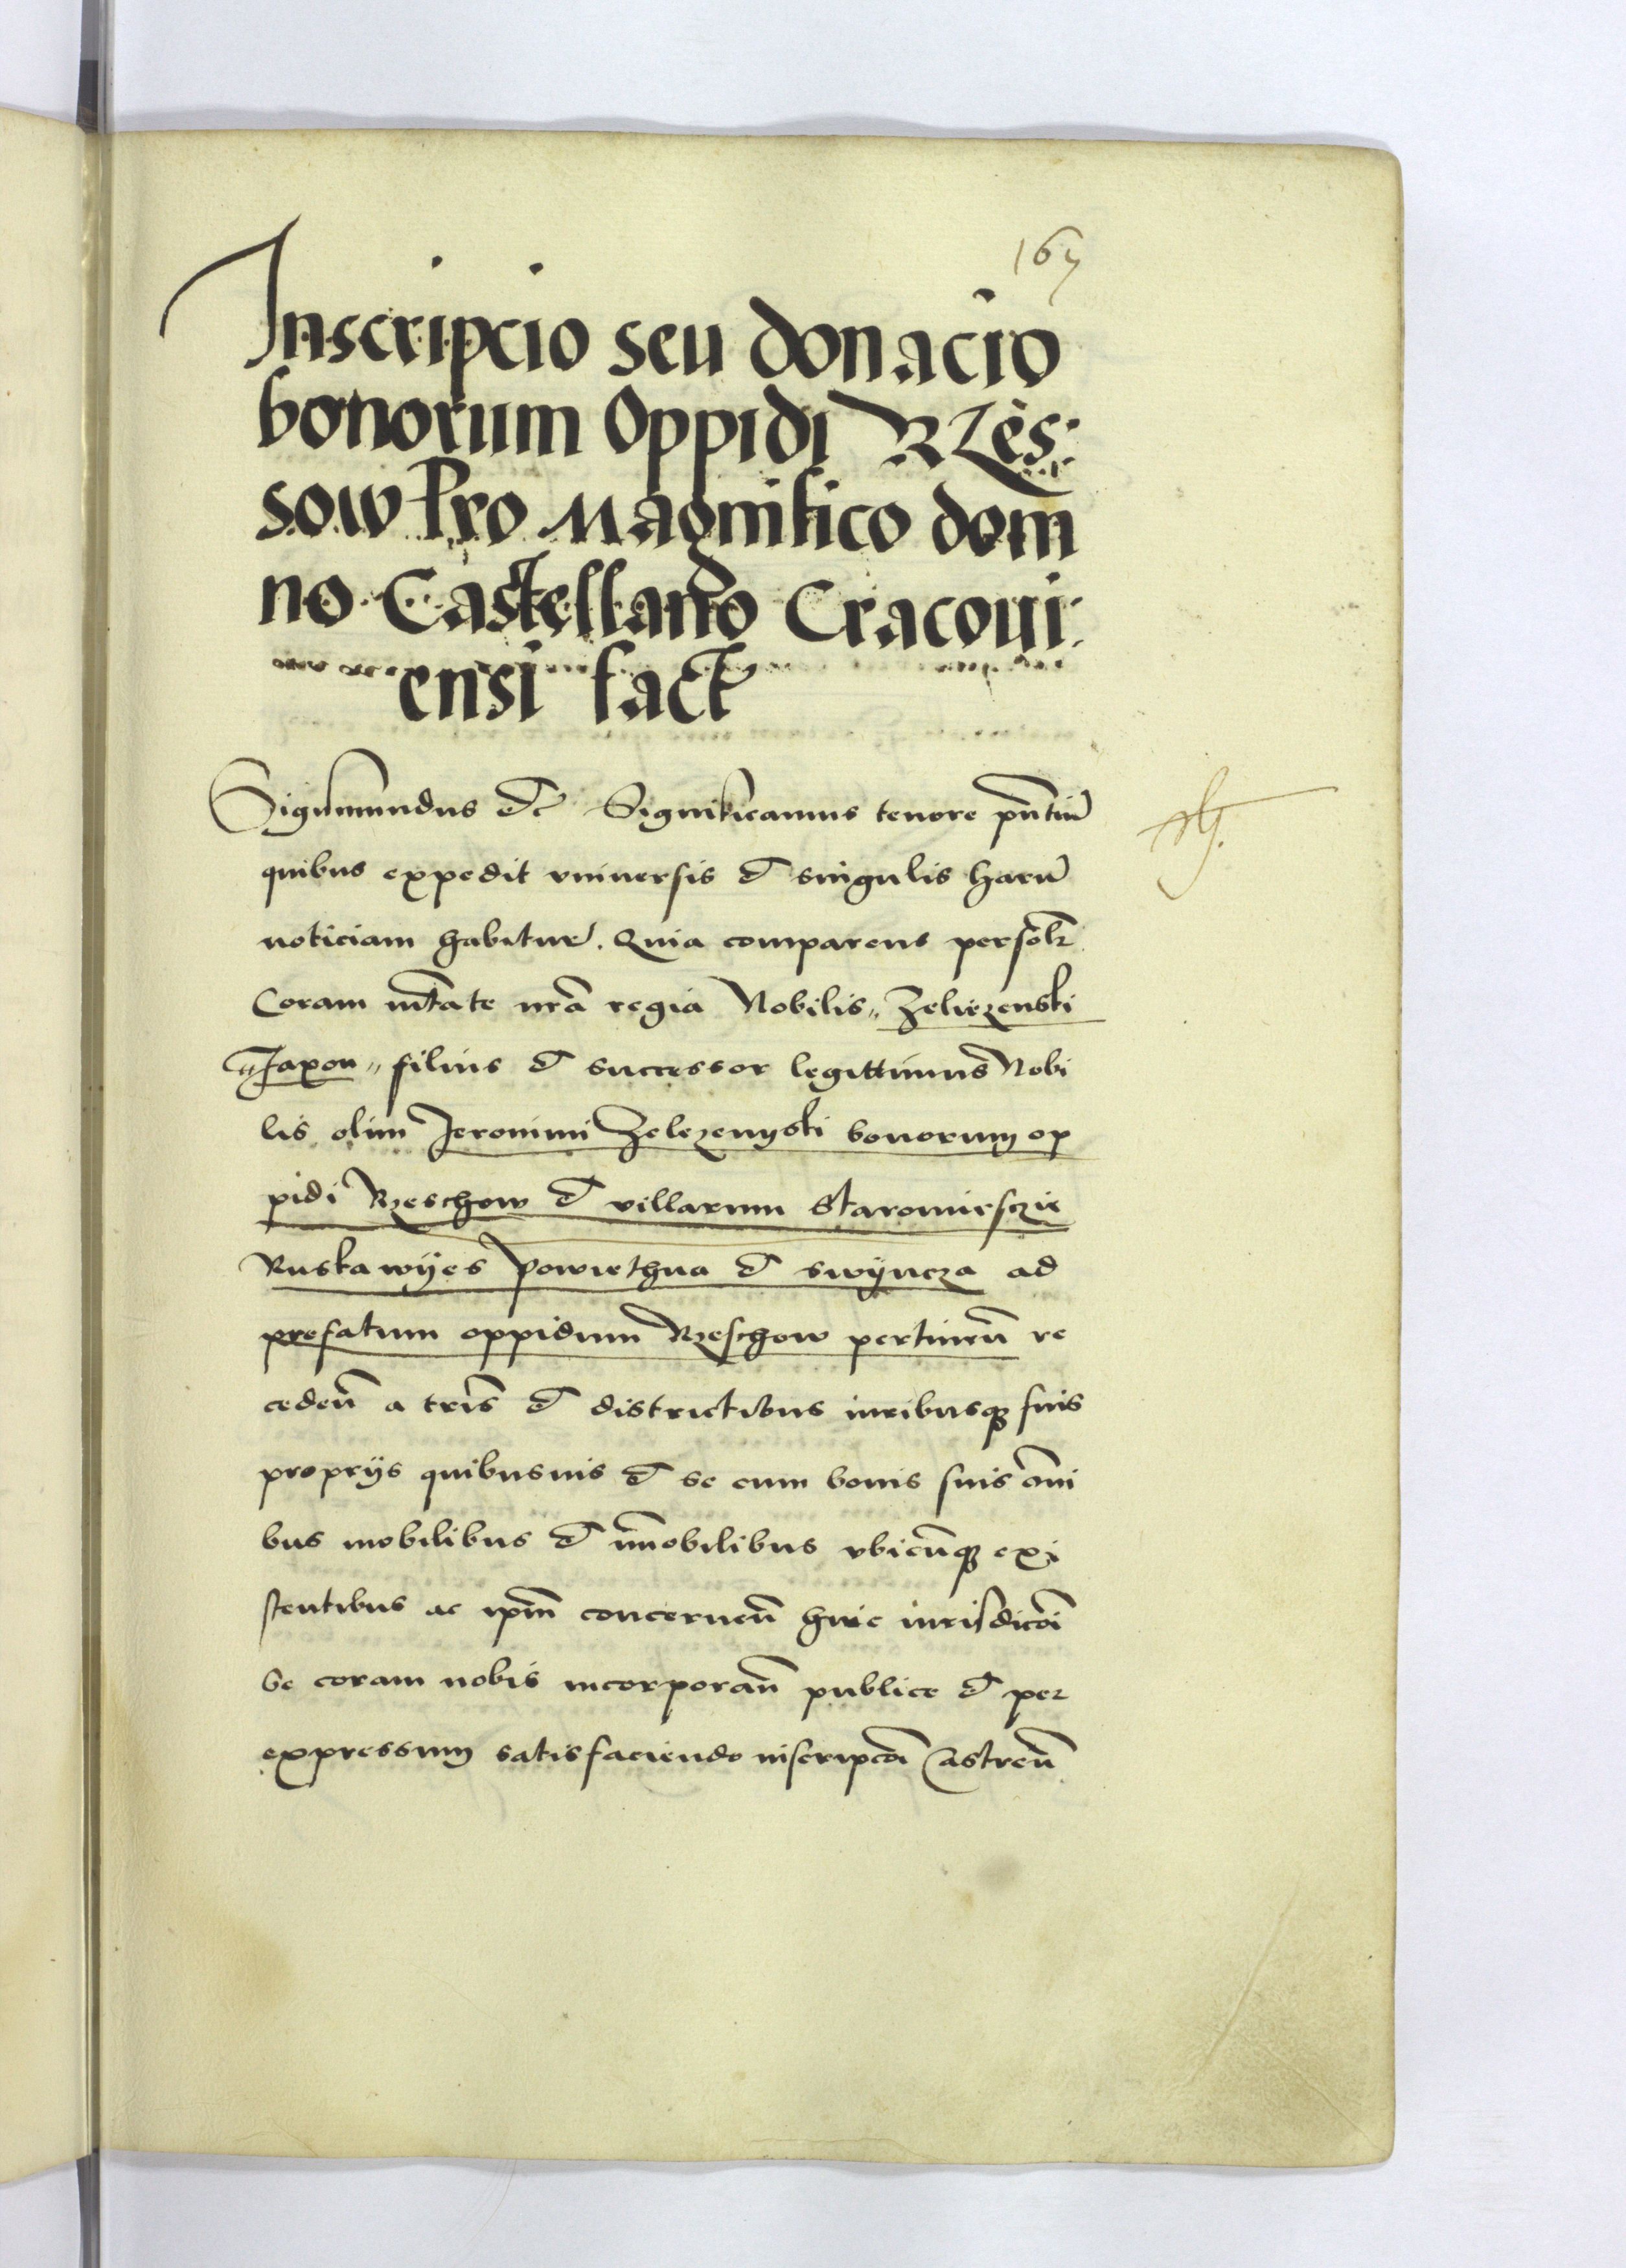 167
Inscripcio seu donacio
bonorum Oppidi Rzes:
sow Pro Magnifico dom
no Castellano Cracoui:
ensi fact
Sigismundus etc Significamus tenore pntiũ
quibus expedit vniuersis et singulis harũ
noticiam habiturẽ. Quia comparens persolr
Coram mtate nrã regia Nobilis, Zeliezenski
Jaxon, filius et successor legittimus Nobi
lis olim Jeronimi Zelezenyski bonorum op
pidi Rzeschow et villarum Staromiesczie
Ruska wyes Powiethna et swÿncza ad
prefatum oppidum Rzeschow pertineñ re
cedeñ a tris et districtibus iuribusq suis
proprijs quibusuis et se cum bonis suis omi
bus mobilibus et imobilibus vbicũq exi
stentibus ac ipm concerneñ huic iurisdicoi
se coram nobis incorporañ publice et per
expressum satisfaciendo inscripcoi Castreñ